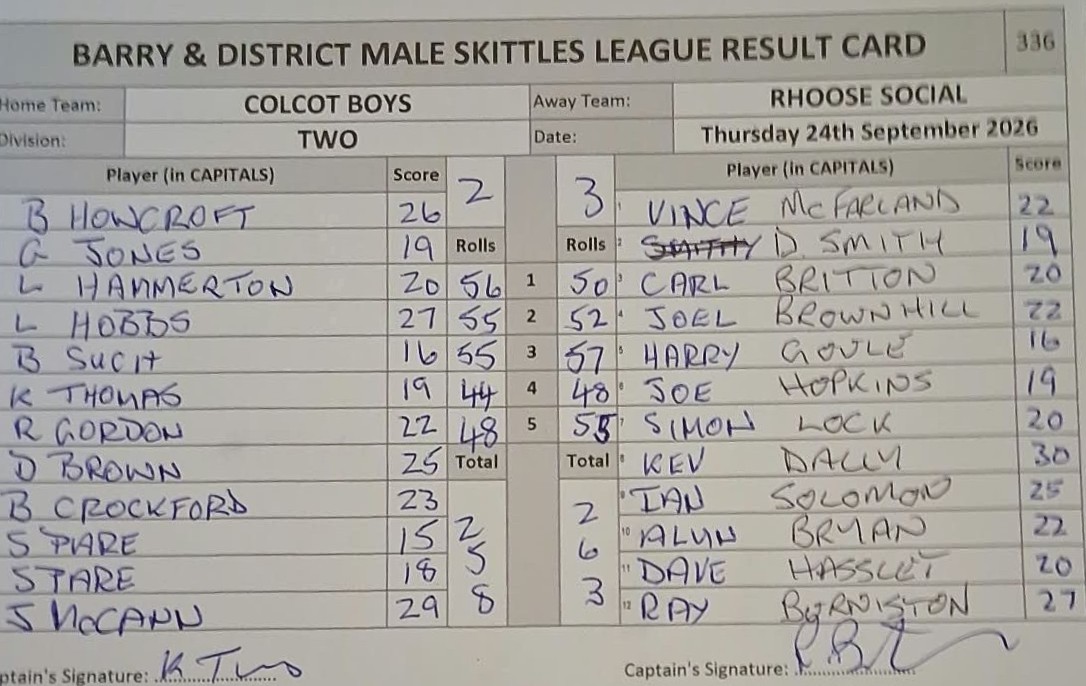 BARRY & DISTRICT MALE SKITTLES LEAGUE RESULT CARD 336
Home Team: COLCOT BOYS Away Team: RHOOSE SOCIAL
Division: TWO Date: Thursday 24th September 2026
Player (in CAPITALS) Score 2 3 Player (in CAPITALS) Score
B HOWCROFT 26 1 VINCE McFARLAND 22
G JONES 19 Rolls Rolls 2 D. SMITH 19
L HAMMERTON 20 56 1 50 3 CARL BRITTON 20
L HOBBS 27 55 2 52 4 JOEL BROWNHILL 22
B SUCIT 16 55 3 57 5 HARRY GOULE 16
K THOMAS 19 44 4 48 6 JOE HOPKINS 19
R GORDON 22 48 5 55 7 SIMON LOCK 20
D BROWN 25 Total Total 8 KEV DALLY 30
B CROCKFORD 23 9 IAN SOLOMON 25
SPARE 15 2 2 10 ALUN BRYAN 22
SPARE 18 5 6 11 DAVE HASSLET 20
S McCANN 29 8 3 12 RAY BURNISTON 27
ptain's Signature: K Captain's Signature: